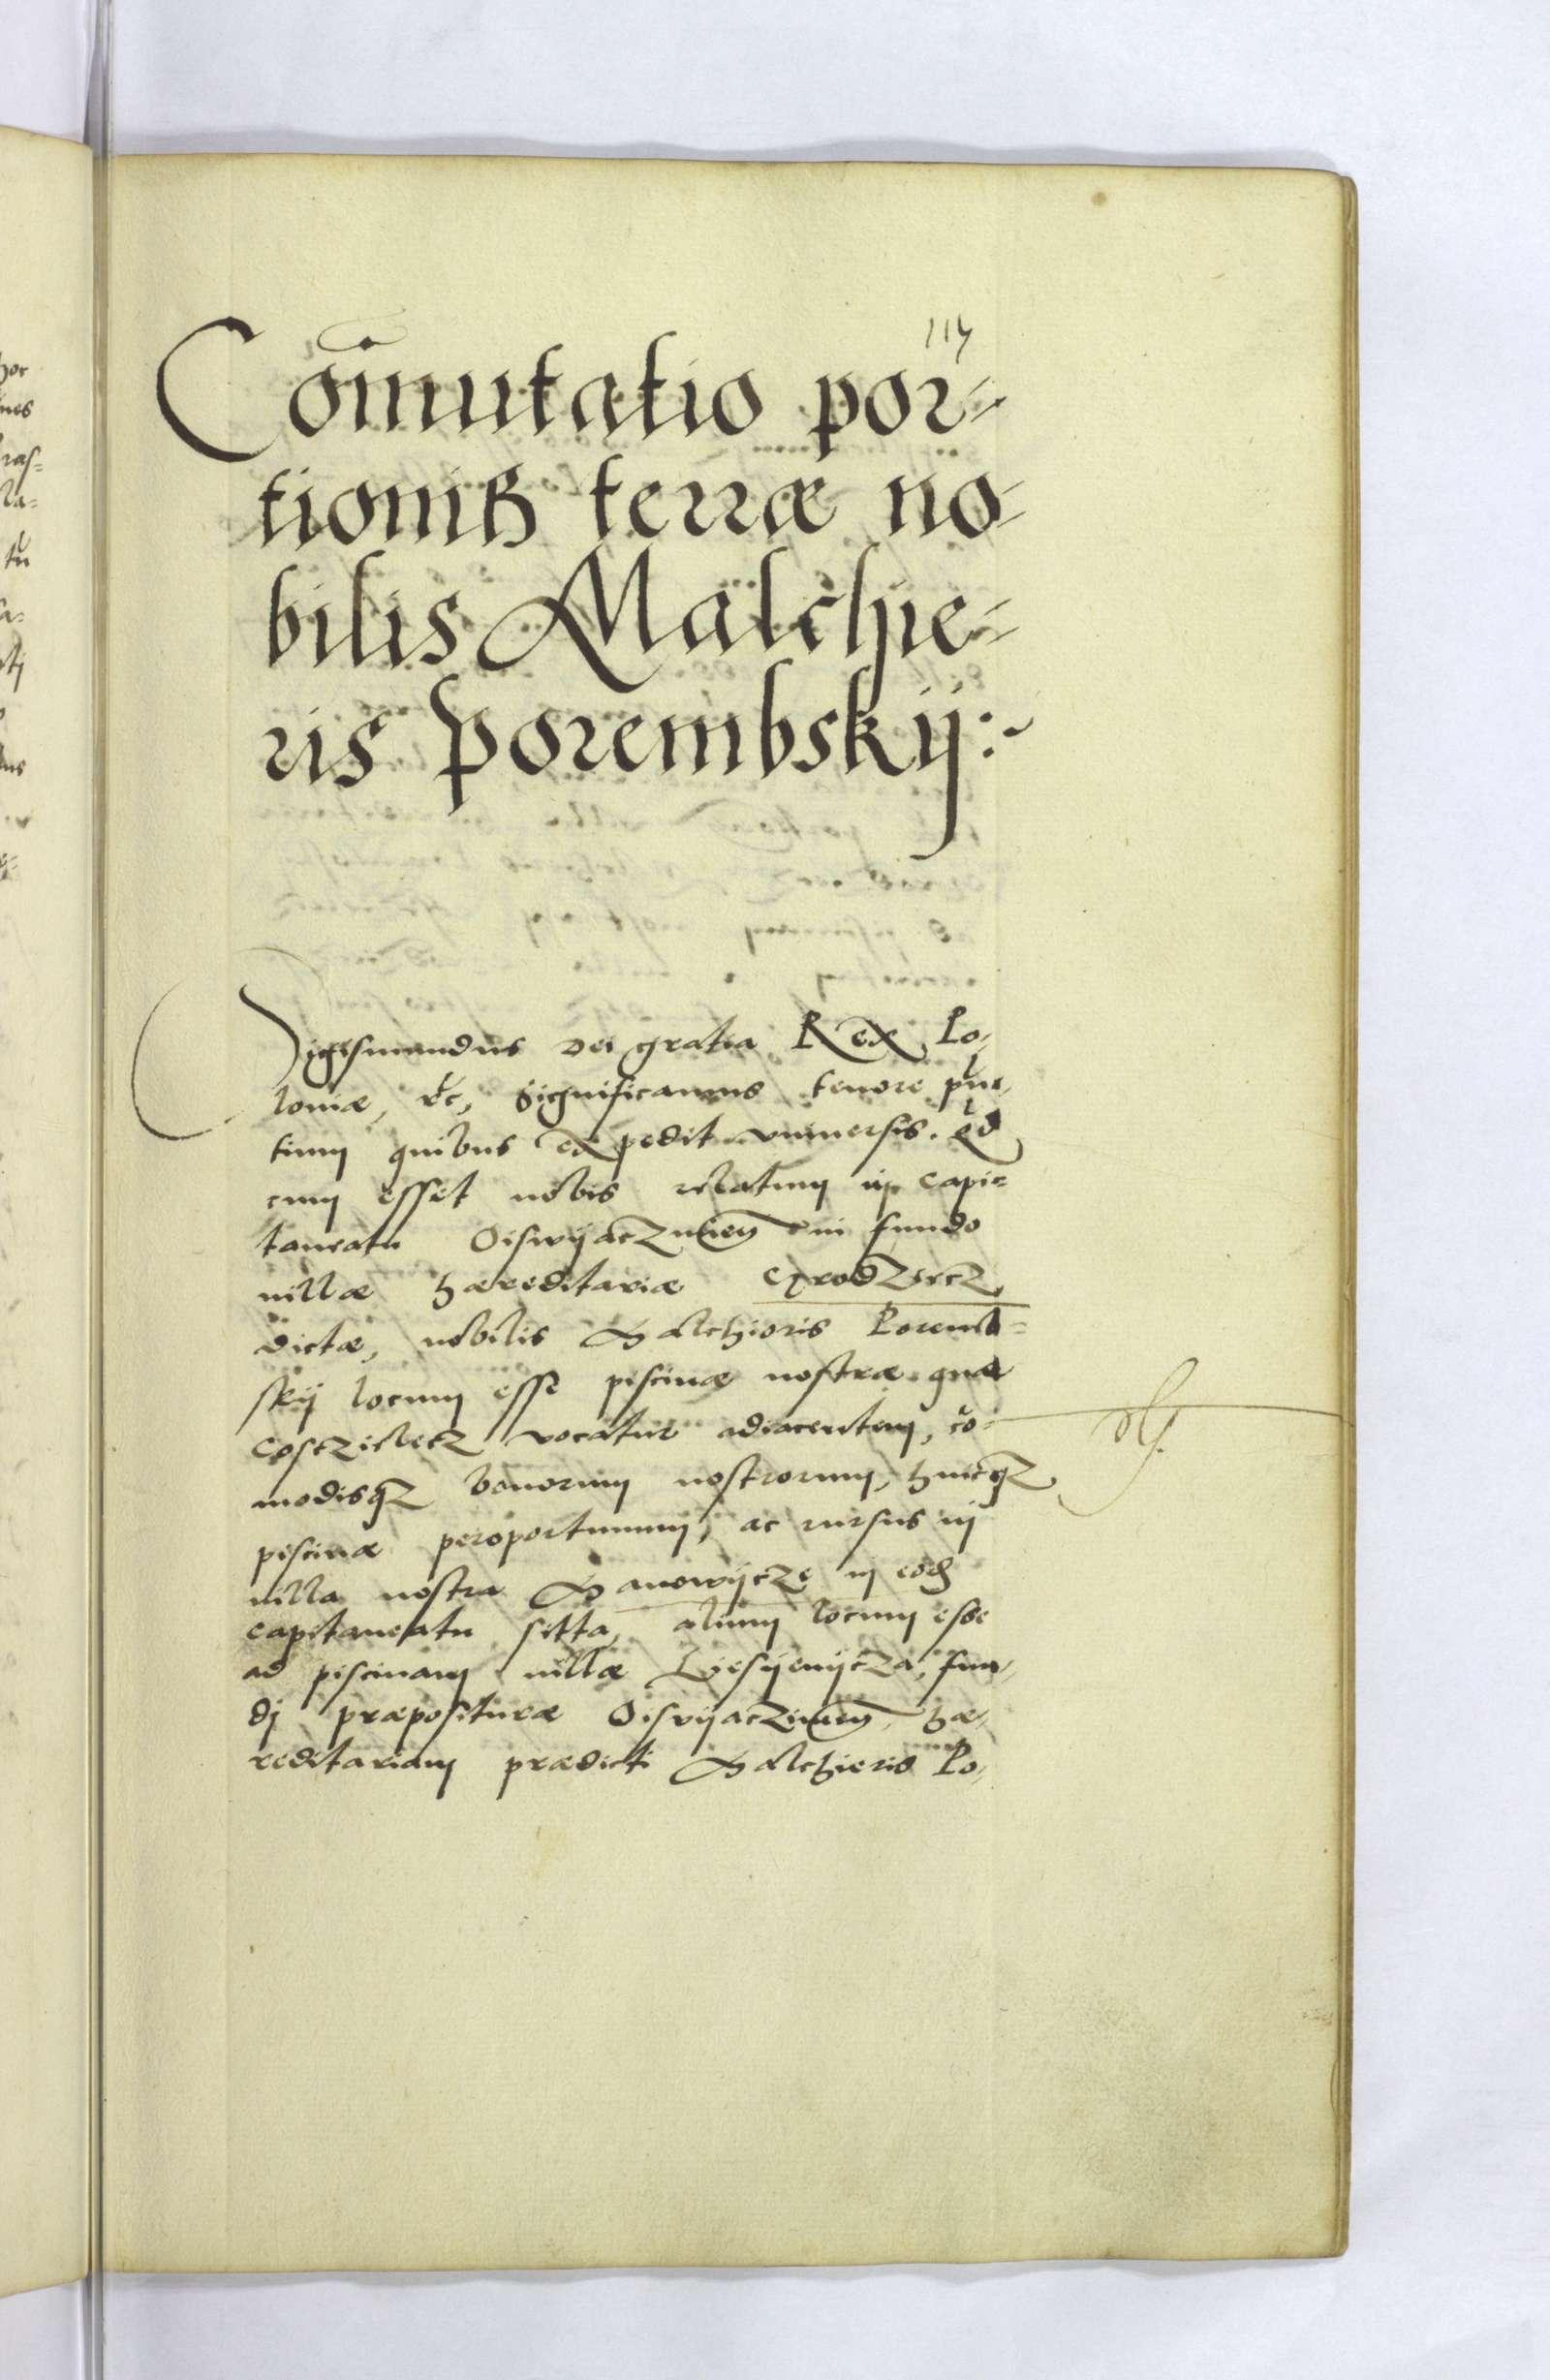 114
Com̄utatio por-
tionis terræ no-
bilis Malchie-
ris Porembskij:~
Sigismundus Dei gratia Rex Po-
loniæ, &c, Significamus tenore pn̄-
tium quibus expedit vniuersis. Qd
cum esset nobis relatum in Capi-
taneatu Oiswijaczimen̄ in fundo
villæ hæreditariæ Grodziecz
dictæ, nobilis Malchioris Poremb-
skij locum esse piscinæ nostræ quæ
vocatur adiacentem, co-
modisq bonorum nostrorum, huicq
piscinæ peroportunum, ac rursus in
villa nostra Manowijcze in eod
Capitaneatu sitta, alium locum esse
ad piscinam villæ fun-
dj præposituræ Oiswijaczimen̄, hæ-
reditariam prædicti Malchieris Po-